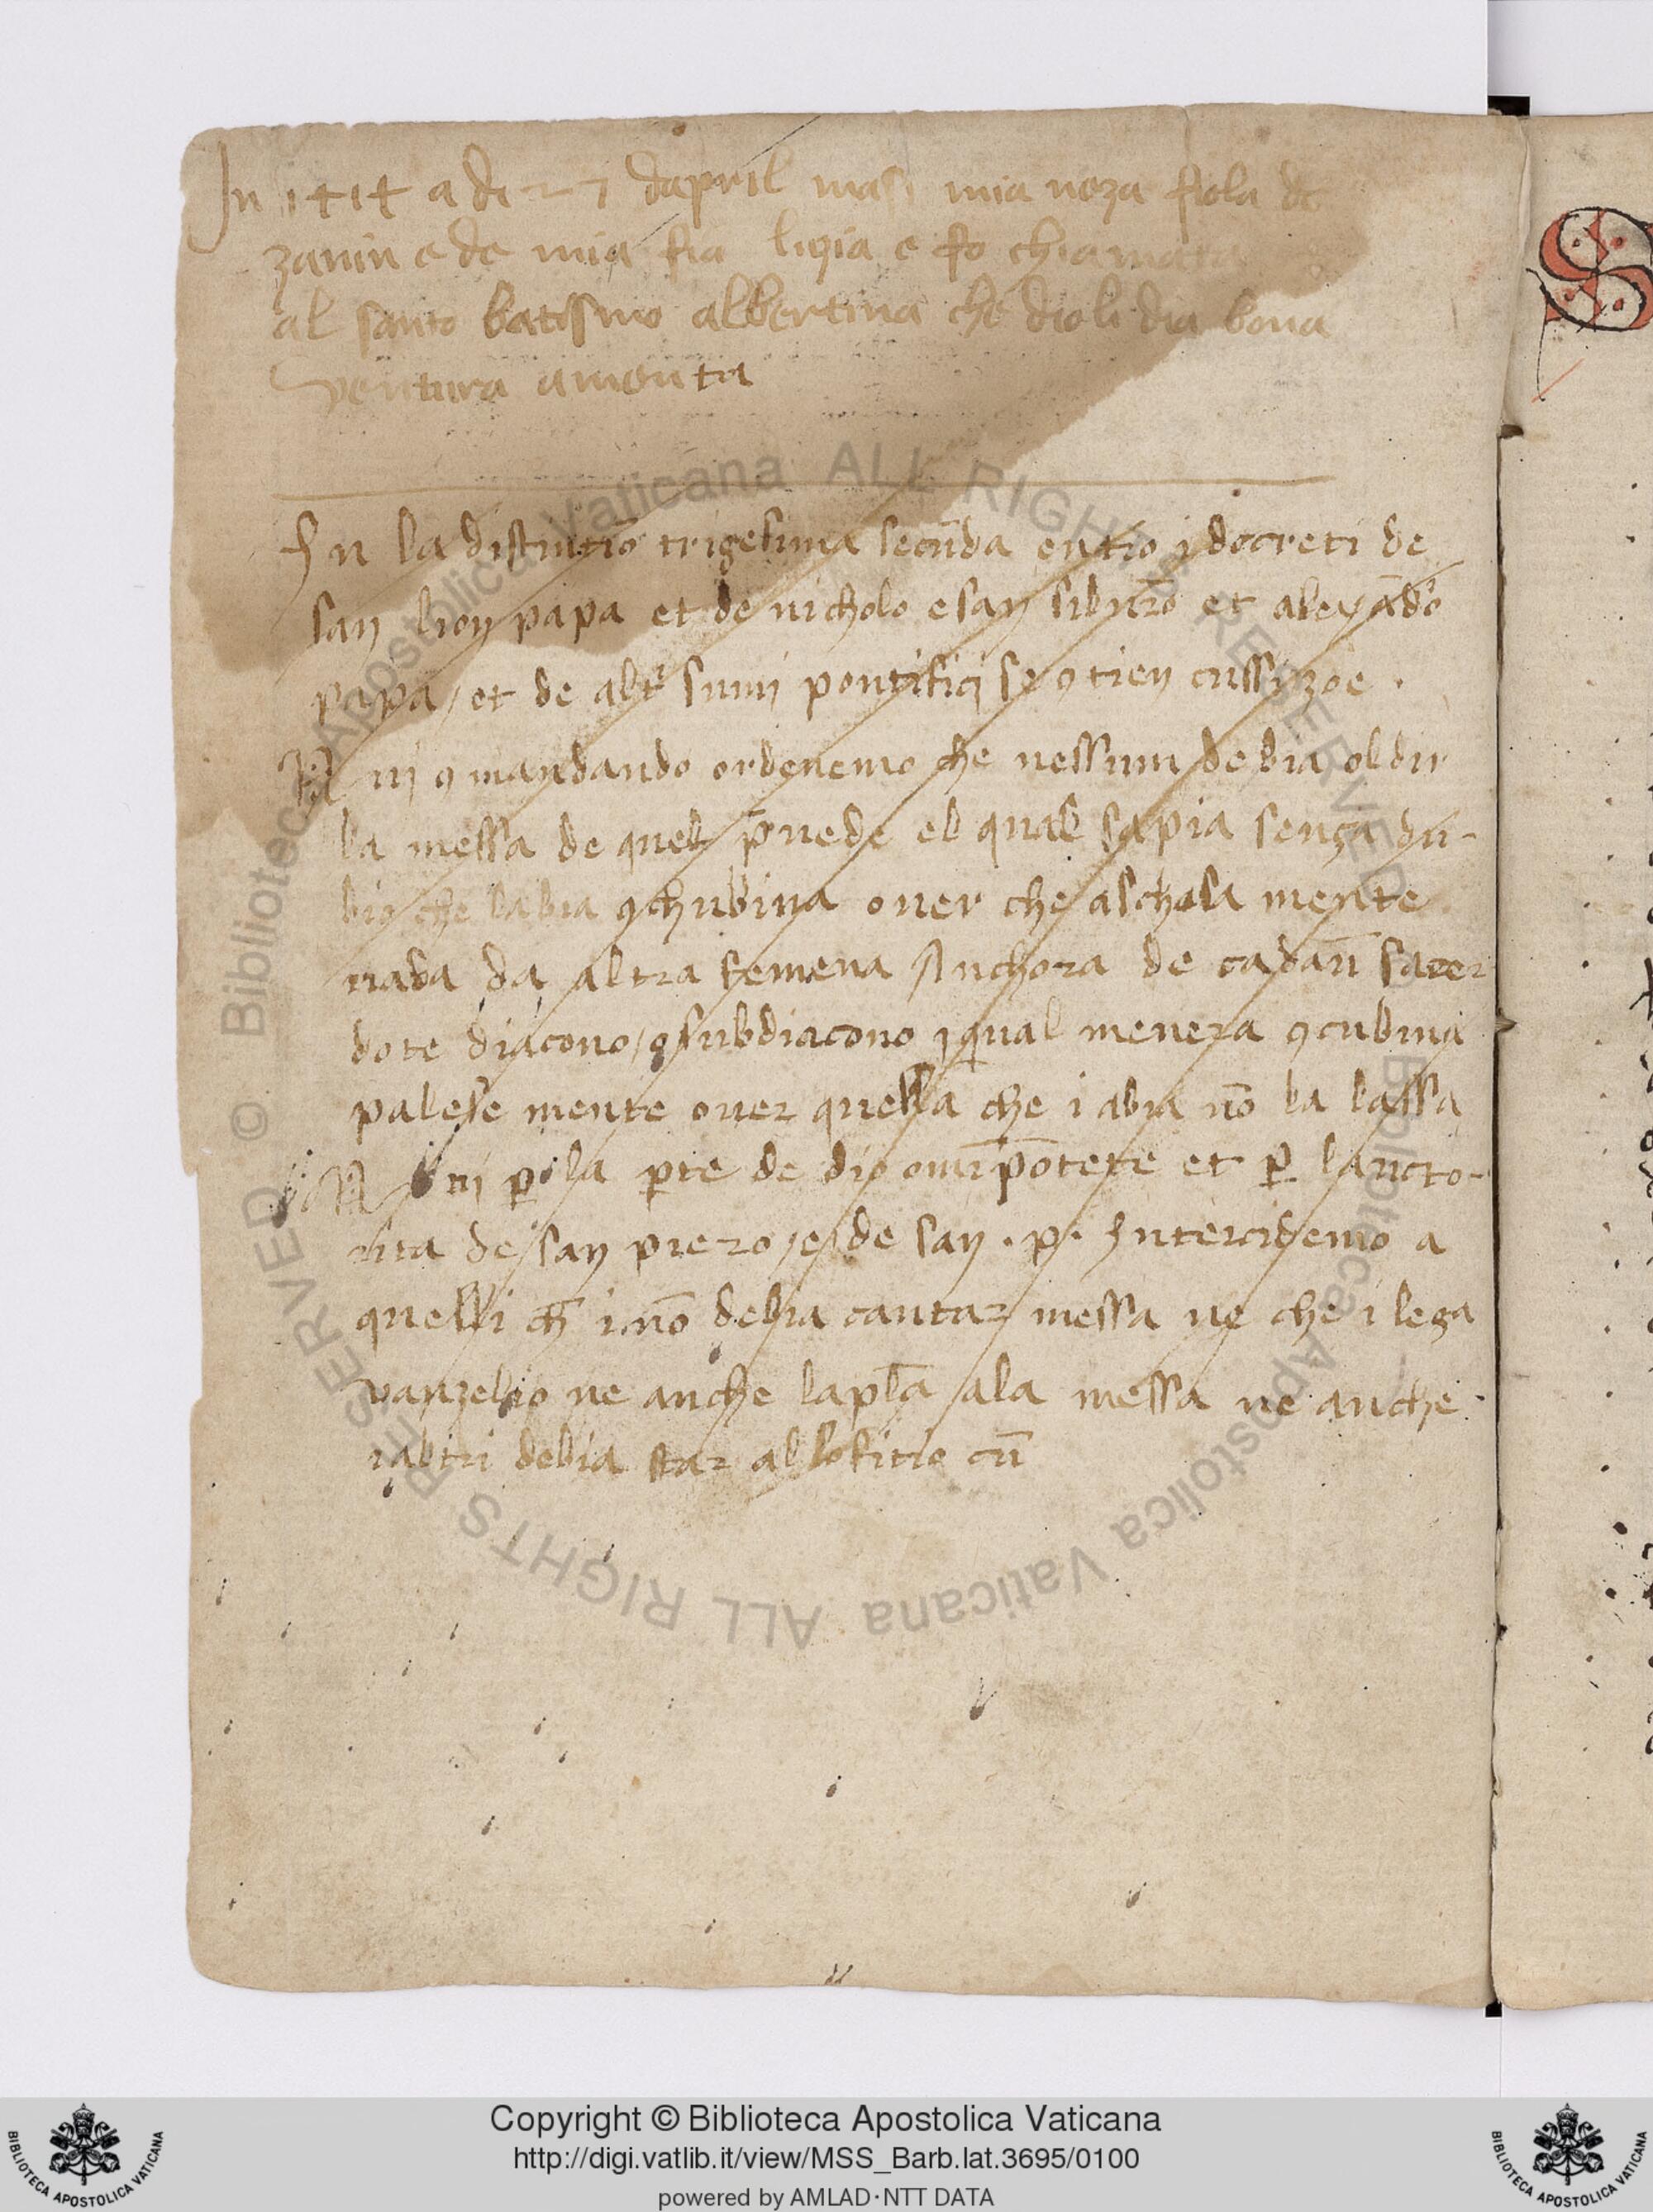 In 1414 a di 27 dapril nasi mia neza fiola de
zanin e de mia fia lizia e fo chiamata
al santo batismo albertina che dioli dia bona
ventura amonta
In la distintiō trigesima secūda entro i decreti de
san lion papa et de nicholo e san silvr̄o et alexād'o
papa / et de alt' sumi pontifici se 9tien cussi zoe .
N ui 9mandando ordenemo che nessun debia oldir
la messa de quel p̄vede el qual sapia senza du-
bio che labia 9chubina over che aschosa mente
vada da altra femena Anchora de cadaū sacer
dote diacono / 9subdiacono iqual menera 9cubina
palese mente over quella che i abia nō la lassa
N ui p̱ la p̱te de dio omīpotēte et p̱ lancto-
rita de san piero / e de san . p . Intercidemo a
quelli ch̄ i nō debia cantar messa ne che i lega
vanzelio ne anche lapl̄a ala messa ne anche
i altri debia star allofitio cū
S
© Biblioteca Apostolica Vaticana ALL RIGHTS RESERVED
© Biblioteca Apostolica Vaticana ALL RIGHTS RESERVED
Copyright © Biblioteca Apostolica Vaticana
http://digi.vatlib.it/view/MSS_Barb.lat.3695/0100
powered by AMLAD·NTT DATA
BIBLIOTECA APOSTOLICA VATICANA
BIBLIOTECA APOSTOLICA VATICANA